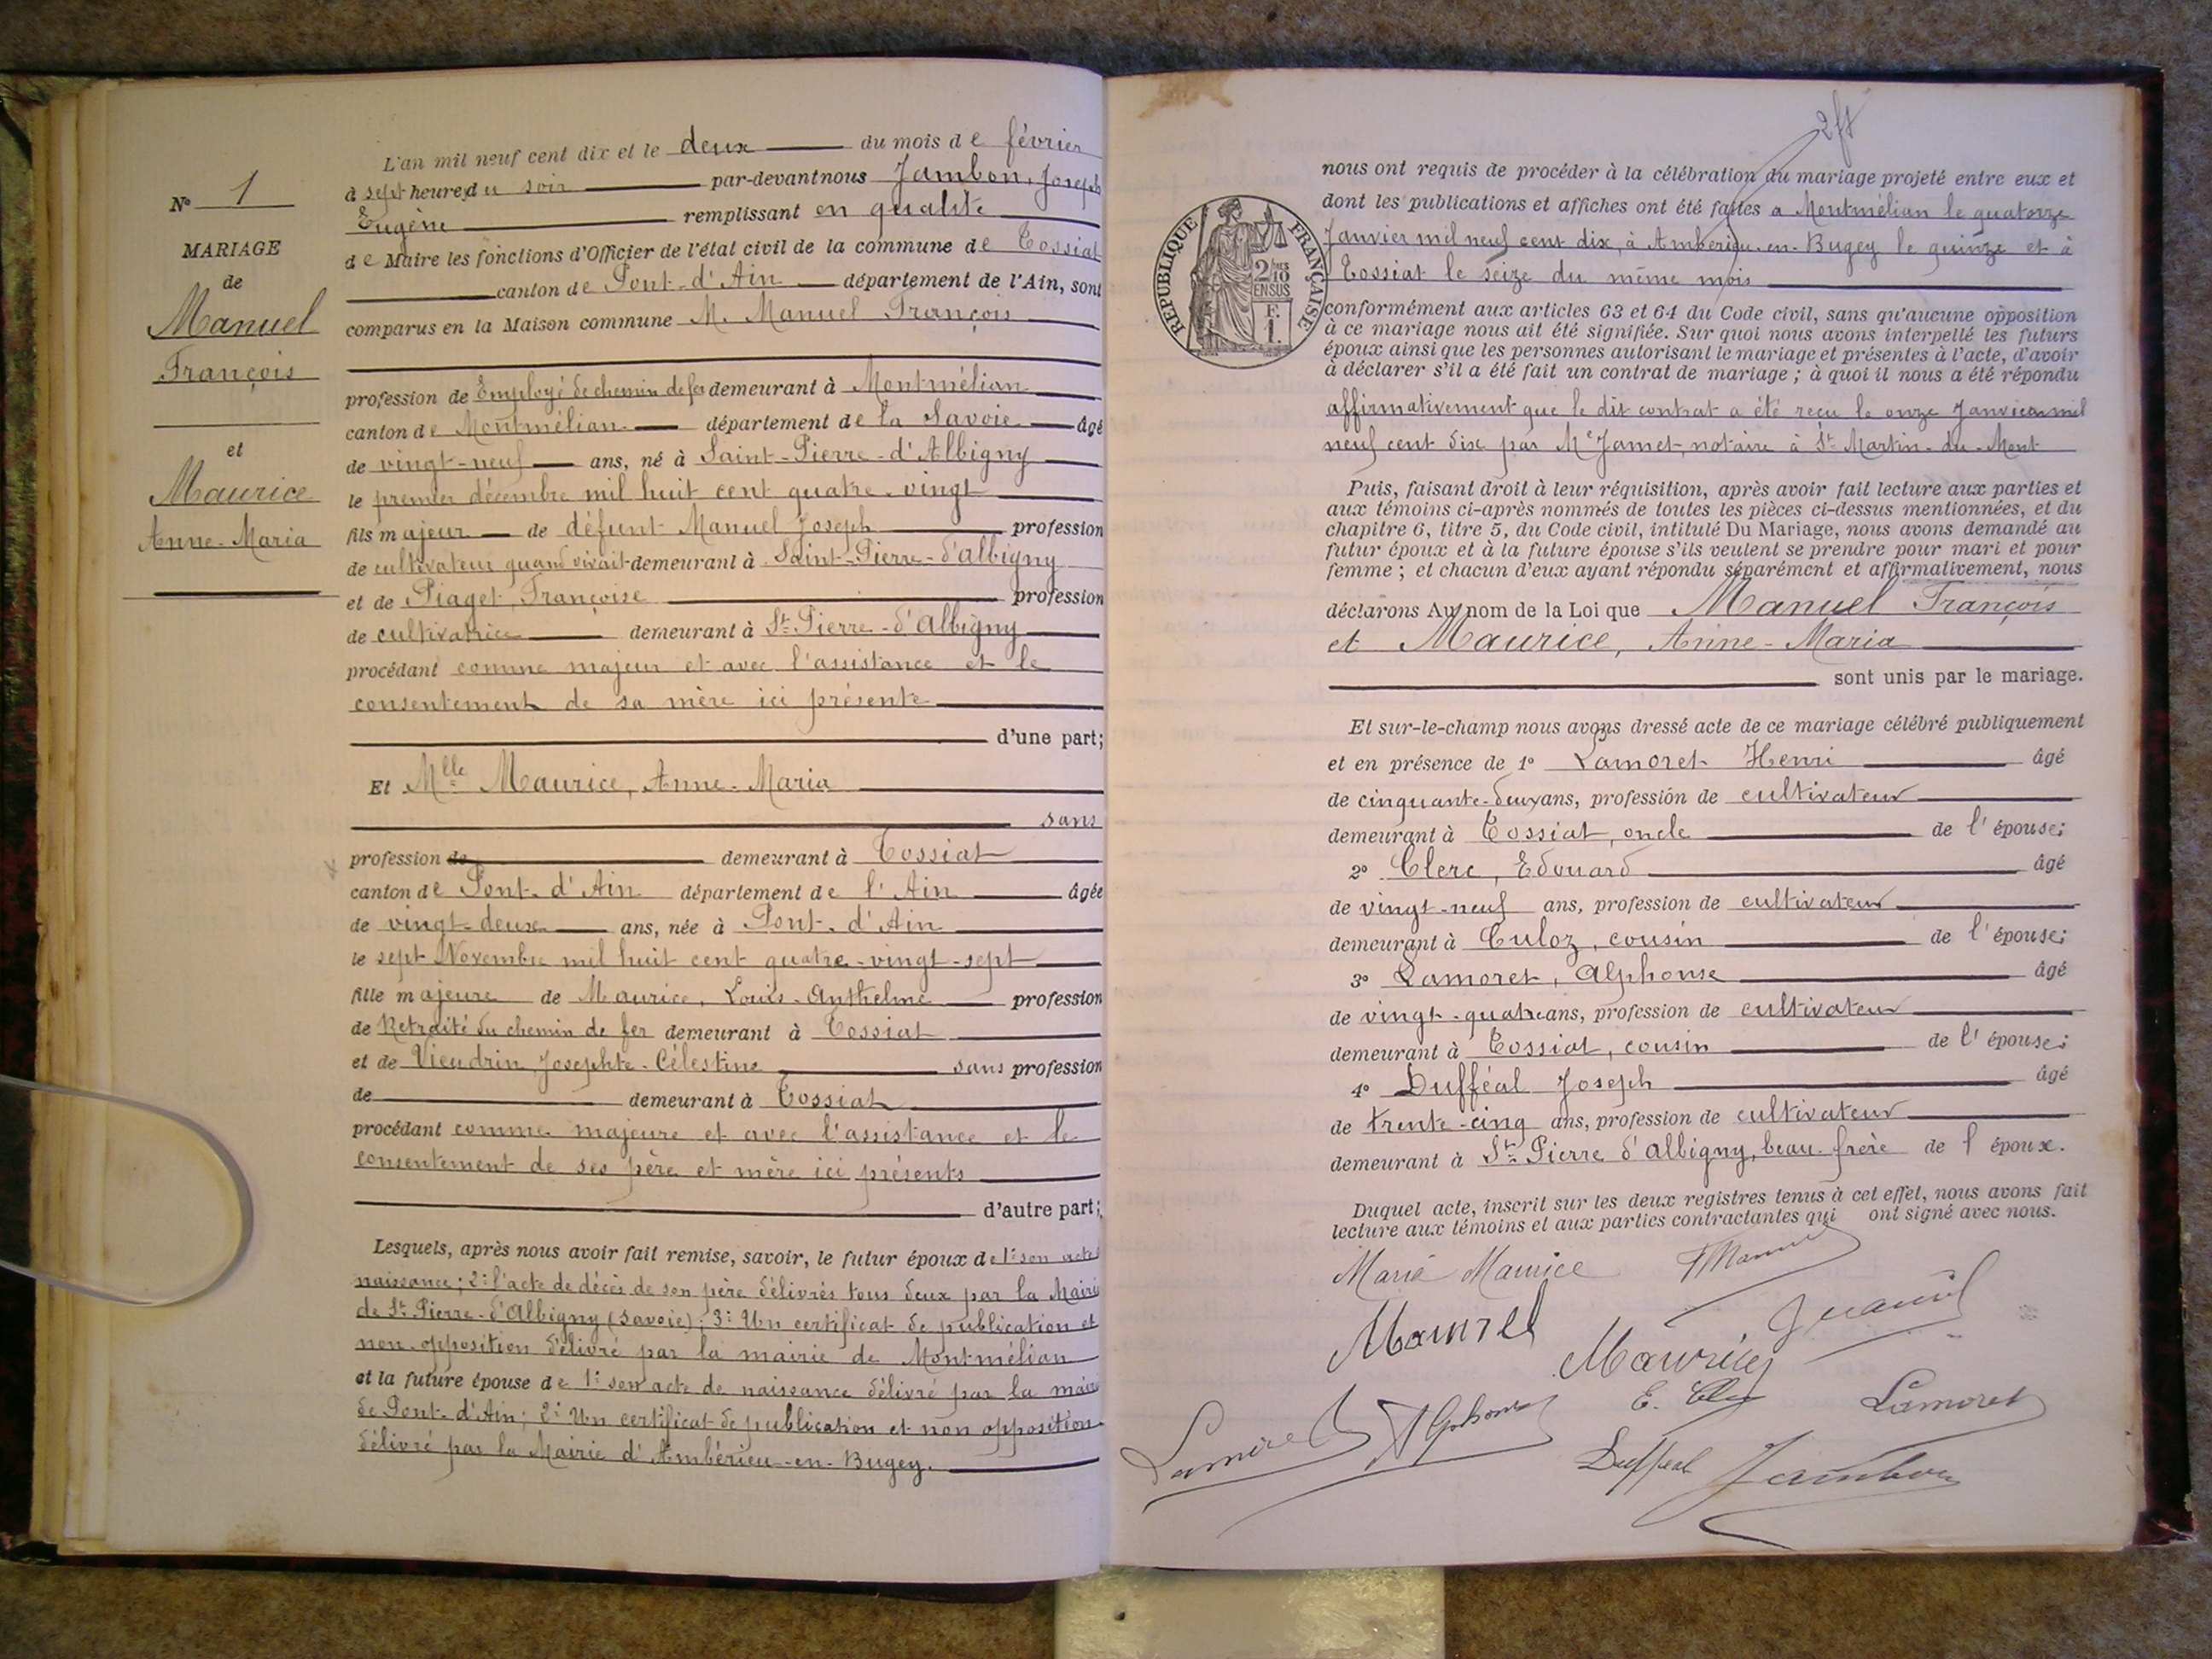 N° 1
MARIAGE
de
Manuel
François
et
Maurice
Anne-Maria
L'an mil neuf cent dix et le deux du mois de février
à sept heures du soir par-devant nous Jambon, Joseph
Eugène remplissant en qualité
de Maire les fonctions d'Officier de l'état civil de la commune de Tossiat
canton de Pont-d'Ain département de l'Ain, sont
comparus en la Maison commune M. Manuel François
profession de Employé de chemin de fer demeurant à Montmélian
canton de Montmélian département de la Savoie âgé
de vingt-neuf ans, né à Saint-Pierre-d'Albigny
le premier décembre mil huit cent quatre-vingt
fils majeur de défunt Manuel Joseph profession
de cultivateur quand vivait demeurant à Saint-Pierre-d'Albigny
et de Piaget, Françoise profession
de cultivatrice demeurant à St-Pierre-d'Albigny
procédant comme majeur et avec l'assistance et le
consentement de sa mère ici présente
d'une part;
Et Mlle Maurice, Anne-Maria
sans
profession de demeurant à Tossiat
canton de Pont-d'Ain département de l'Ain âgée
de vingt-deux ans, née à Pont-d'Ain
le sept Novembre mil huit cent quatre-vingt-sept
fille majeure de Maurice, Louis-Anthelme profession
de Retraité du chemin de fer demeurant à Tossiat
et de Vieudrin Josephte-Célestine sans profession
de demeurant à Tossiat
procédant comme majeure et avec l'assistance et le
consentement de ses père et mère ici présents
d'autre part;
Lesquels, après nous avoir fait remise, savoir, le futur époux de 1° son acte
naissance; 2° l'acte de décès de son père délivrés tous deux par la Mairie
de St-Pierre-d'Albigny (Savoie); 3° Un certificat de publication et
non-opposition délivré par la mairie de Montmélian
et la future épouse de 1° son acte de naissance délivré par la mairie
de Pont-d'Ain; 2° Un certificat de publication et non opposition
délivré par la Mairie d'Ambérieu-en-Bugey.
RÉPUBLIQUE FRANÇAISE
2/10
EN SUS
F.
1.
nous ont requis de procéder à la célébration du mariage projeté entre eux et
dont les publications et affiches ont été faites à Montmélian le quatorze
Janvier mil neuf cent dix, à Ambérieu-en-Bugey le quinze et à
Tossiat le seize du même mois
conformément aux articles 63 et 64 du Code civil, sans qu'aucune opposition
à ce mariage nous ait été signifiée. Sur quoi nous avons interpellé les futurs
époux ainsi que les personnes autorisant le mariage et présentes à l'acte, d'avoir
à déclarer s'il a été fait un contrat de mariage; à quoi il nous a été répondu
affirmativement que le dit contrat a été reçu le onze Janvier mil
neuf cent dix par Me Jamet, notaire à St-Martin-du-Mont
Puis, faisant droit à leur réquisition, après avoir fait lecture aux parties et
aux témoins ci-après nommés de toutes les pièces ci-dessus mentionnées, et du
chapitre 6, titre 5, du Code civil, intitulé Du Mariage, nous avons demandé au
futur époux et à la future épouse s'ils veulent se prendre pour mari et pour
femme; et chacun d'eux ayant répondu séparément et affirmativement, nous
déclarons Au nom de la Loi que Manuel François
et Maurice, Anne-Maria
sont unis par le mariage.
Et sur-le-champ nous avons dressé acte de ce mariage célébré publiquement
et en présence de 1° Lamoret Henri âgé
de cinquante-deux ans, profession de cultivateur
demeurant à Tossiat, oncle de l'épouse;
2° Clerc, Edouard âgé
de vingt-neuf ans, profession de cultivateur
demeurant à Culoz, cousin de l'épouse;
3° Lamoret, Alphonse âgé
de vingt-quatre ans, profession de cultivateur
demeurant à Tossiat, cousin de l'épouse;
4° Dufféal Joseph âgé
de trente-cinq ans, profession de cultivateur
demeurant à St-Pierre d'Albigny, beau-frère de l'époux.
Duquel acte, inscrit sur les deux registres tenus à cet effet, nous avons fait
lecture aux témoins et aux parties contractantes qui ont signé avec nous.
Maria Maurice FManuel
Maurice
E. Clerc Lamoret
Lamoret Alphonse
Dufféal Jambon